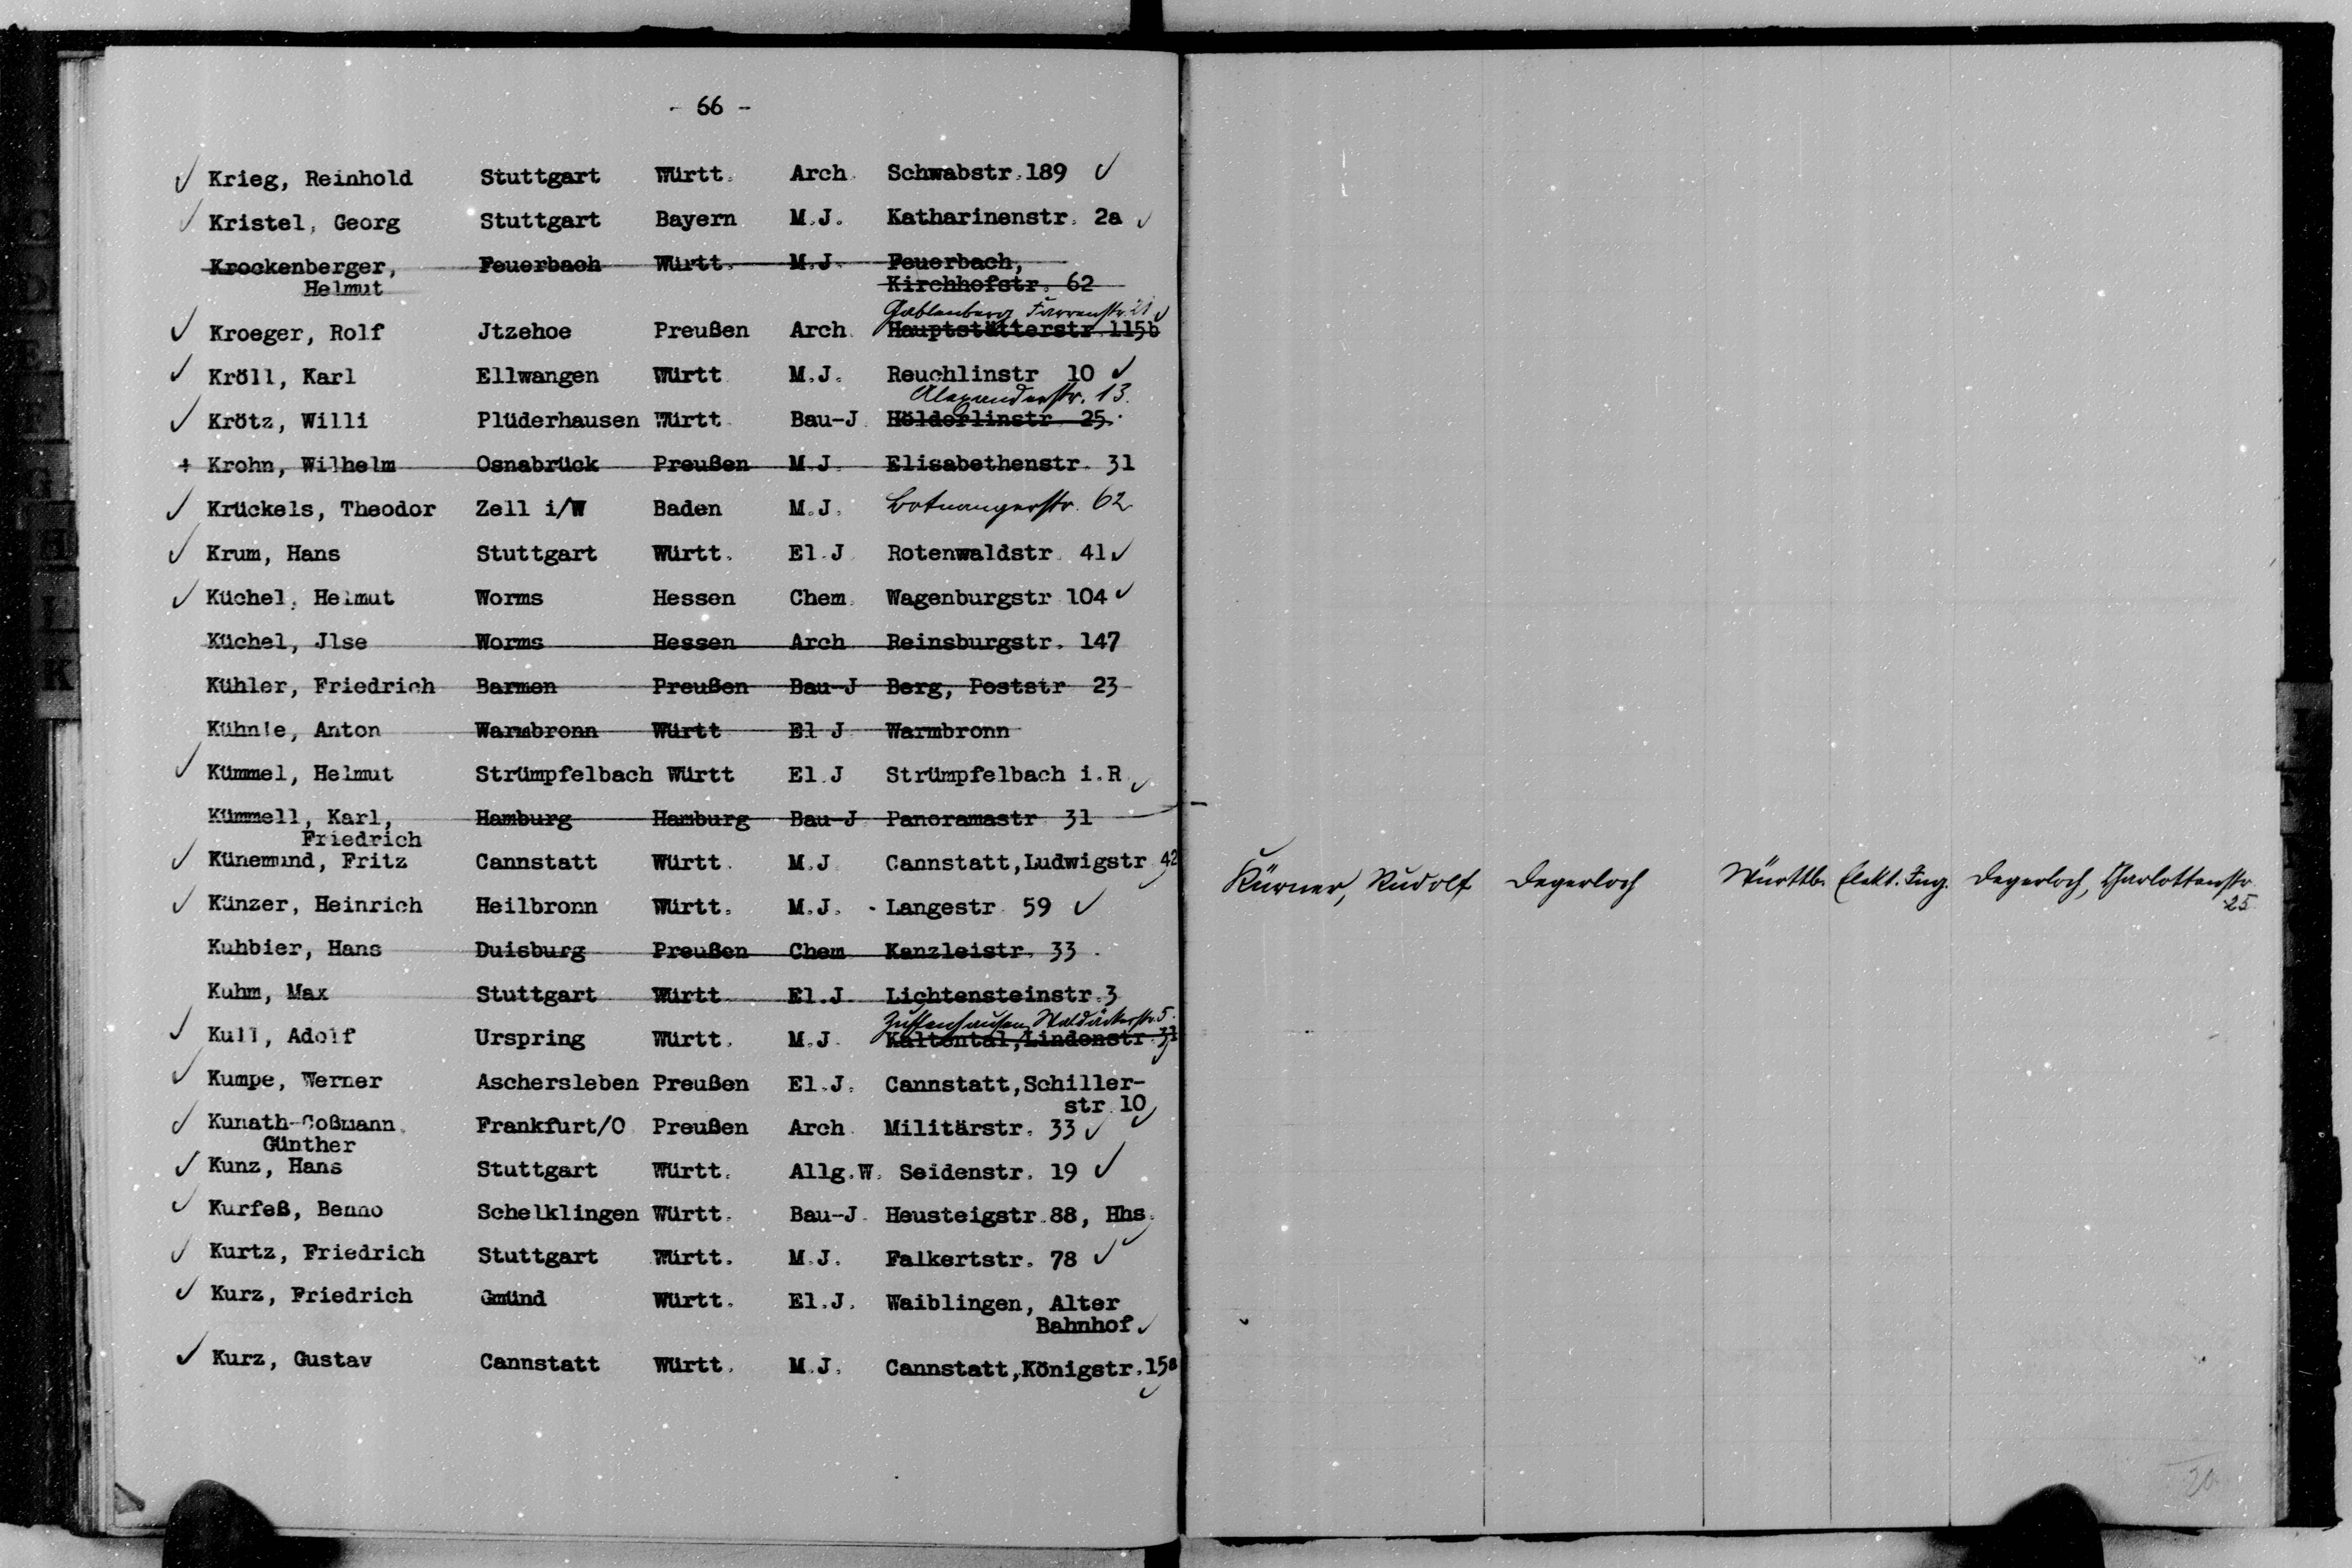 - 66 -
✓ Krieg, Reinhold Stuttgart Württ. Arch. Schwabstr. 189 ✓
✓ Kristel, Georg Stuttgart Bayern M.J. Katharinenstr. 2a ✓
Krockenberger, Feuerbach Württ. M.J. Feuerbach,
Helmut Kirchhofstr. 62
Gablenberg Farrenstr. 21 ✓
✓ Kroeger, Rolf Jtzehoe Preußen Arch. Hauptstätterstr. 115b
✓ Kröll, Karl Ellwangen Württ M.J. Reuchlinstr 10 ✓
Alexanderstr. 13.
✓ Krötz, Willi Plüderhausen Württ. Bau-J. Hölderlinstr 25.
+ Krohn, Wilhelm Osnabrück Preußen M.J. Elisabethenstr. 31
✓ Krückels, Theodor Zell i/W Baden M.J. Botnangerstr. 62
✓ Krum, Hans Stuttgart Württ. El.J Rotenwaldstr. 41 ✓
✓ Küchel, Helmut Worms Hessen Chem. Wagenburgstr 104 ✓
Küchel, Jlse Worms Hessen Arch Reinsburgstr. 147
Kühler, Friedrich Barmen Preußen Bau-J Berg, Poststr 23
Kühnle, Anton Warmbronn Württ El J Warmbronn
✓ Kümmel, Helmut Strümpfelbach Württ El.J Strümpfelbach i.R. ✓
Kümmell, Karl, Hamburg Hamburg Bau-J Panoramastr. 31
Friedrich
✓ Künemund, Fritz Cannstatt Württ. M.J. Cannstatt,Ludwigstr 42
✓ Künzer, Heinrich Heilbronn Württ. M.J. Langestr. 59 ✓
Kuhbier, Hans Duisburg Preußen Chem Kanzleistr. 33
Kuhm, Max Stuttgart Württ El.J Lichtensteinstr. 3
Zuffenhausen, Waldäckerstr. 5.
✓ Kull, Adolf Urspring Württ. M.J. Kaltental,Lindenstr 31
✓ Kumpe, Werner Aschersleben Preußen El.J. Cannstatt,Schiller-
str. 10 ✓
✓ Kunath-Coßmann, Frankfurt/O. Preußen Arch. Militärstr. 33 ✓
Günther
✓ Kunz, Hans Stuttgart Württ. Allg.W. Seidenstr. 19 ✓
✓ Kurfeß, Benno Schelklingen Württ. Bau-J. Heusteigstr. 88, Hhs. ✓
✓ Kurtz, Friedrich Stuttgart Württ. M.J. Falkertstr. 78 ✓
✓ Kurz, Friedrich Gmünd Württ. El.J. Waiblingen, Alter
Bahnhof ✓
✓ Kurz, Gustav Cannstatt Württ. M.J. Cannstatt,Königstr.15a ✓
Kürner, Rudolf Degerloch Württb. Elekt. Ing. Degerloch, Charlottenstr.
25
E
D
E
F
G
H
I
K